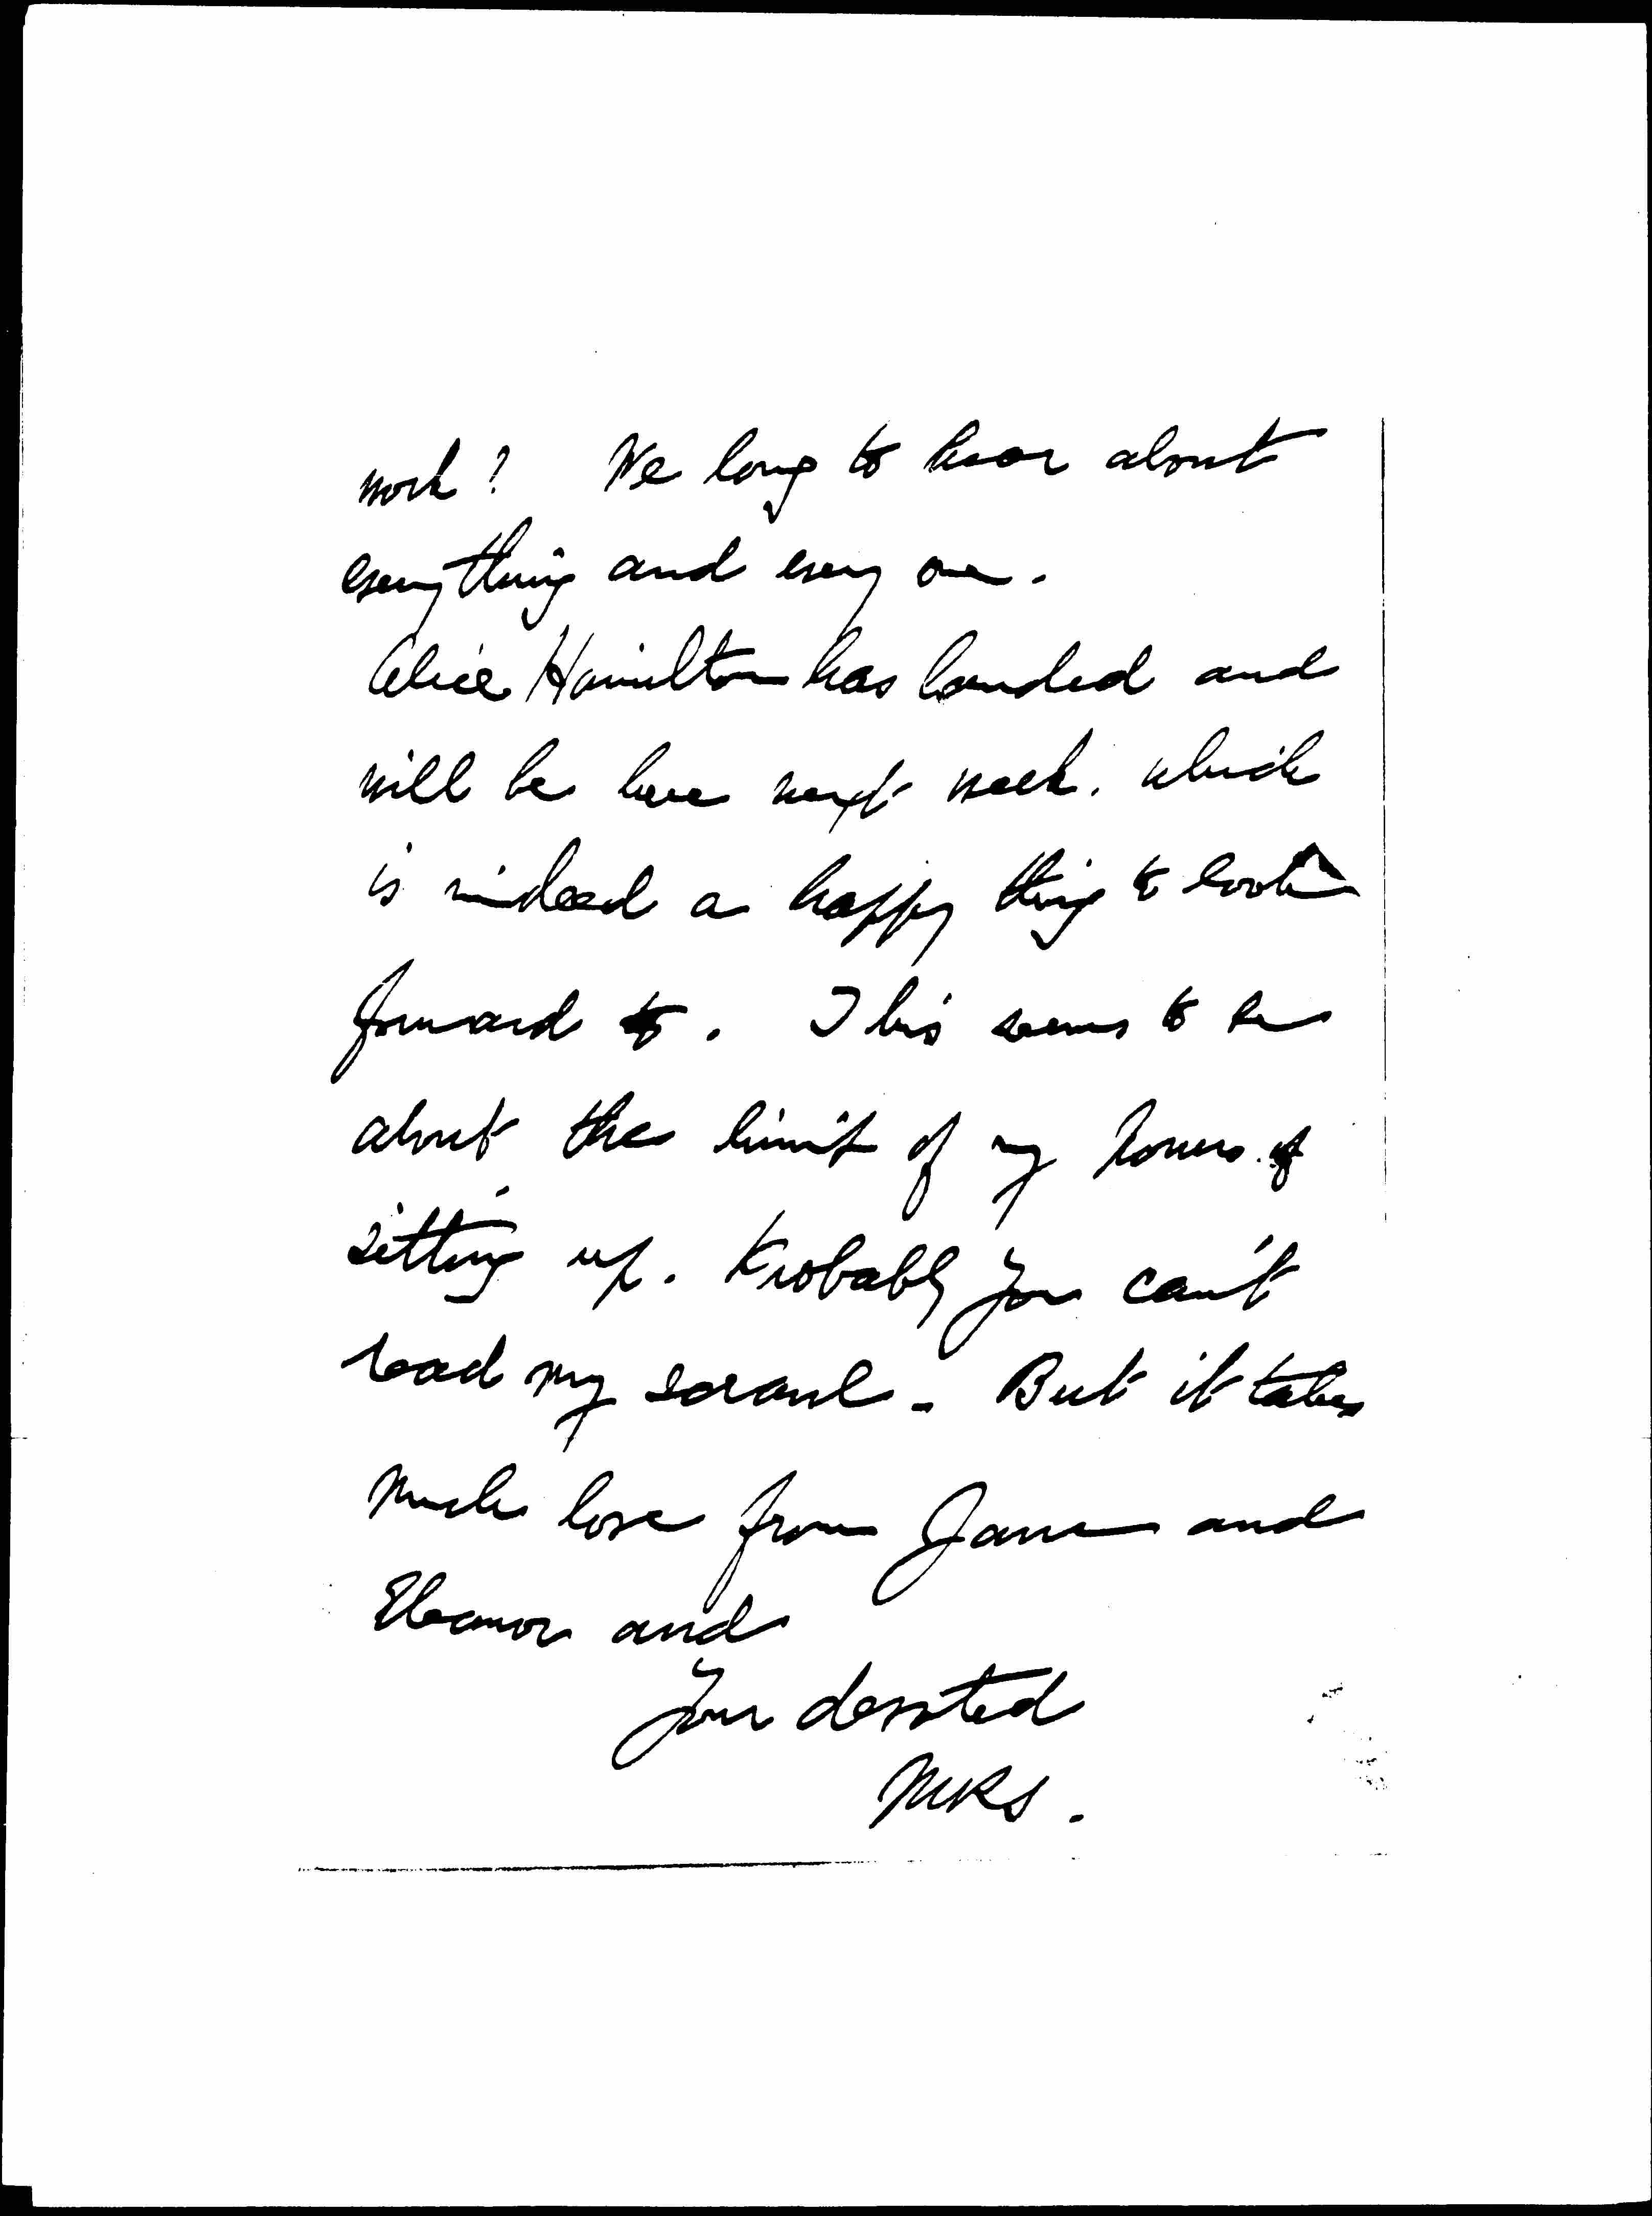 work? We long to hear about
everything and every one.
Alice Hamilton has landed and
will be here next week. which
is indeed a happy thing to look
forward to. This seems to be
about the limit of my powers of
sitting up. Probably you can't
read my scrawl - But it takes
much love from Jane and
Eleanor and
Your devoted
MRS.